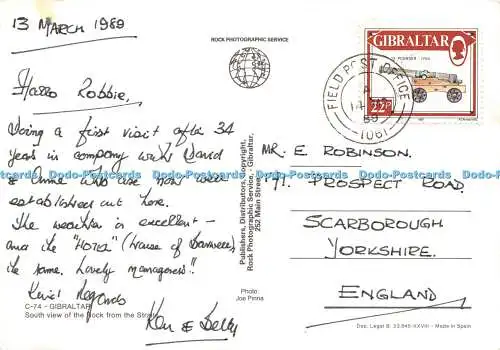 13 MARCH 1989
Hallo Robbie,
Doing a first visit after 34
years in company with David
& Anne who are now well
established out here.
The weather is excellent -
and the "HOTEL" (House of Bannerman)
the same. Lovely manageress!!
Kind Regards
Ken & Betty
C-74 - GIBRALTAR
South view of the Rock from the Strait
ROCK PHOTOGRAPHIC SERVICE
Publishers, Distributors, Copyright,
Rock Photographic Service, - Gibraltar,
252 Main Street
Photo:
Joe Pinna
GIBRALTAR
22P
FIELD POST OFFICE
A
14
89
1061
MR. E. ROBINSON.
171. PROSPECT ROAD
SCARBOROUGH
YORKSHIRE.
ENGLAND
Dep. Legal B. 23.845-XXVIII - Made in Spain
www.Postcards-Finder.com